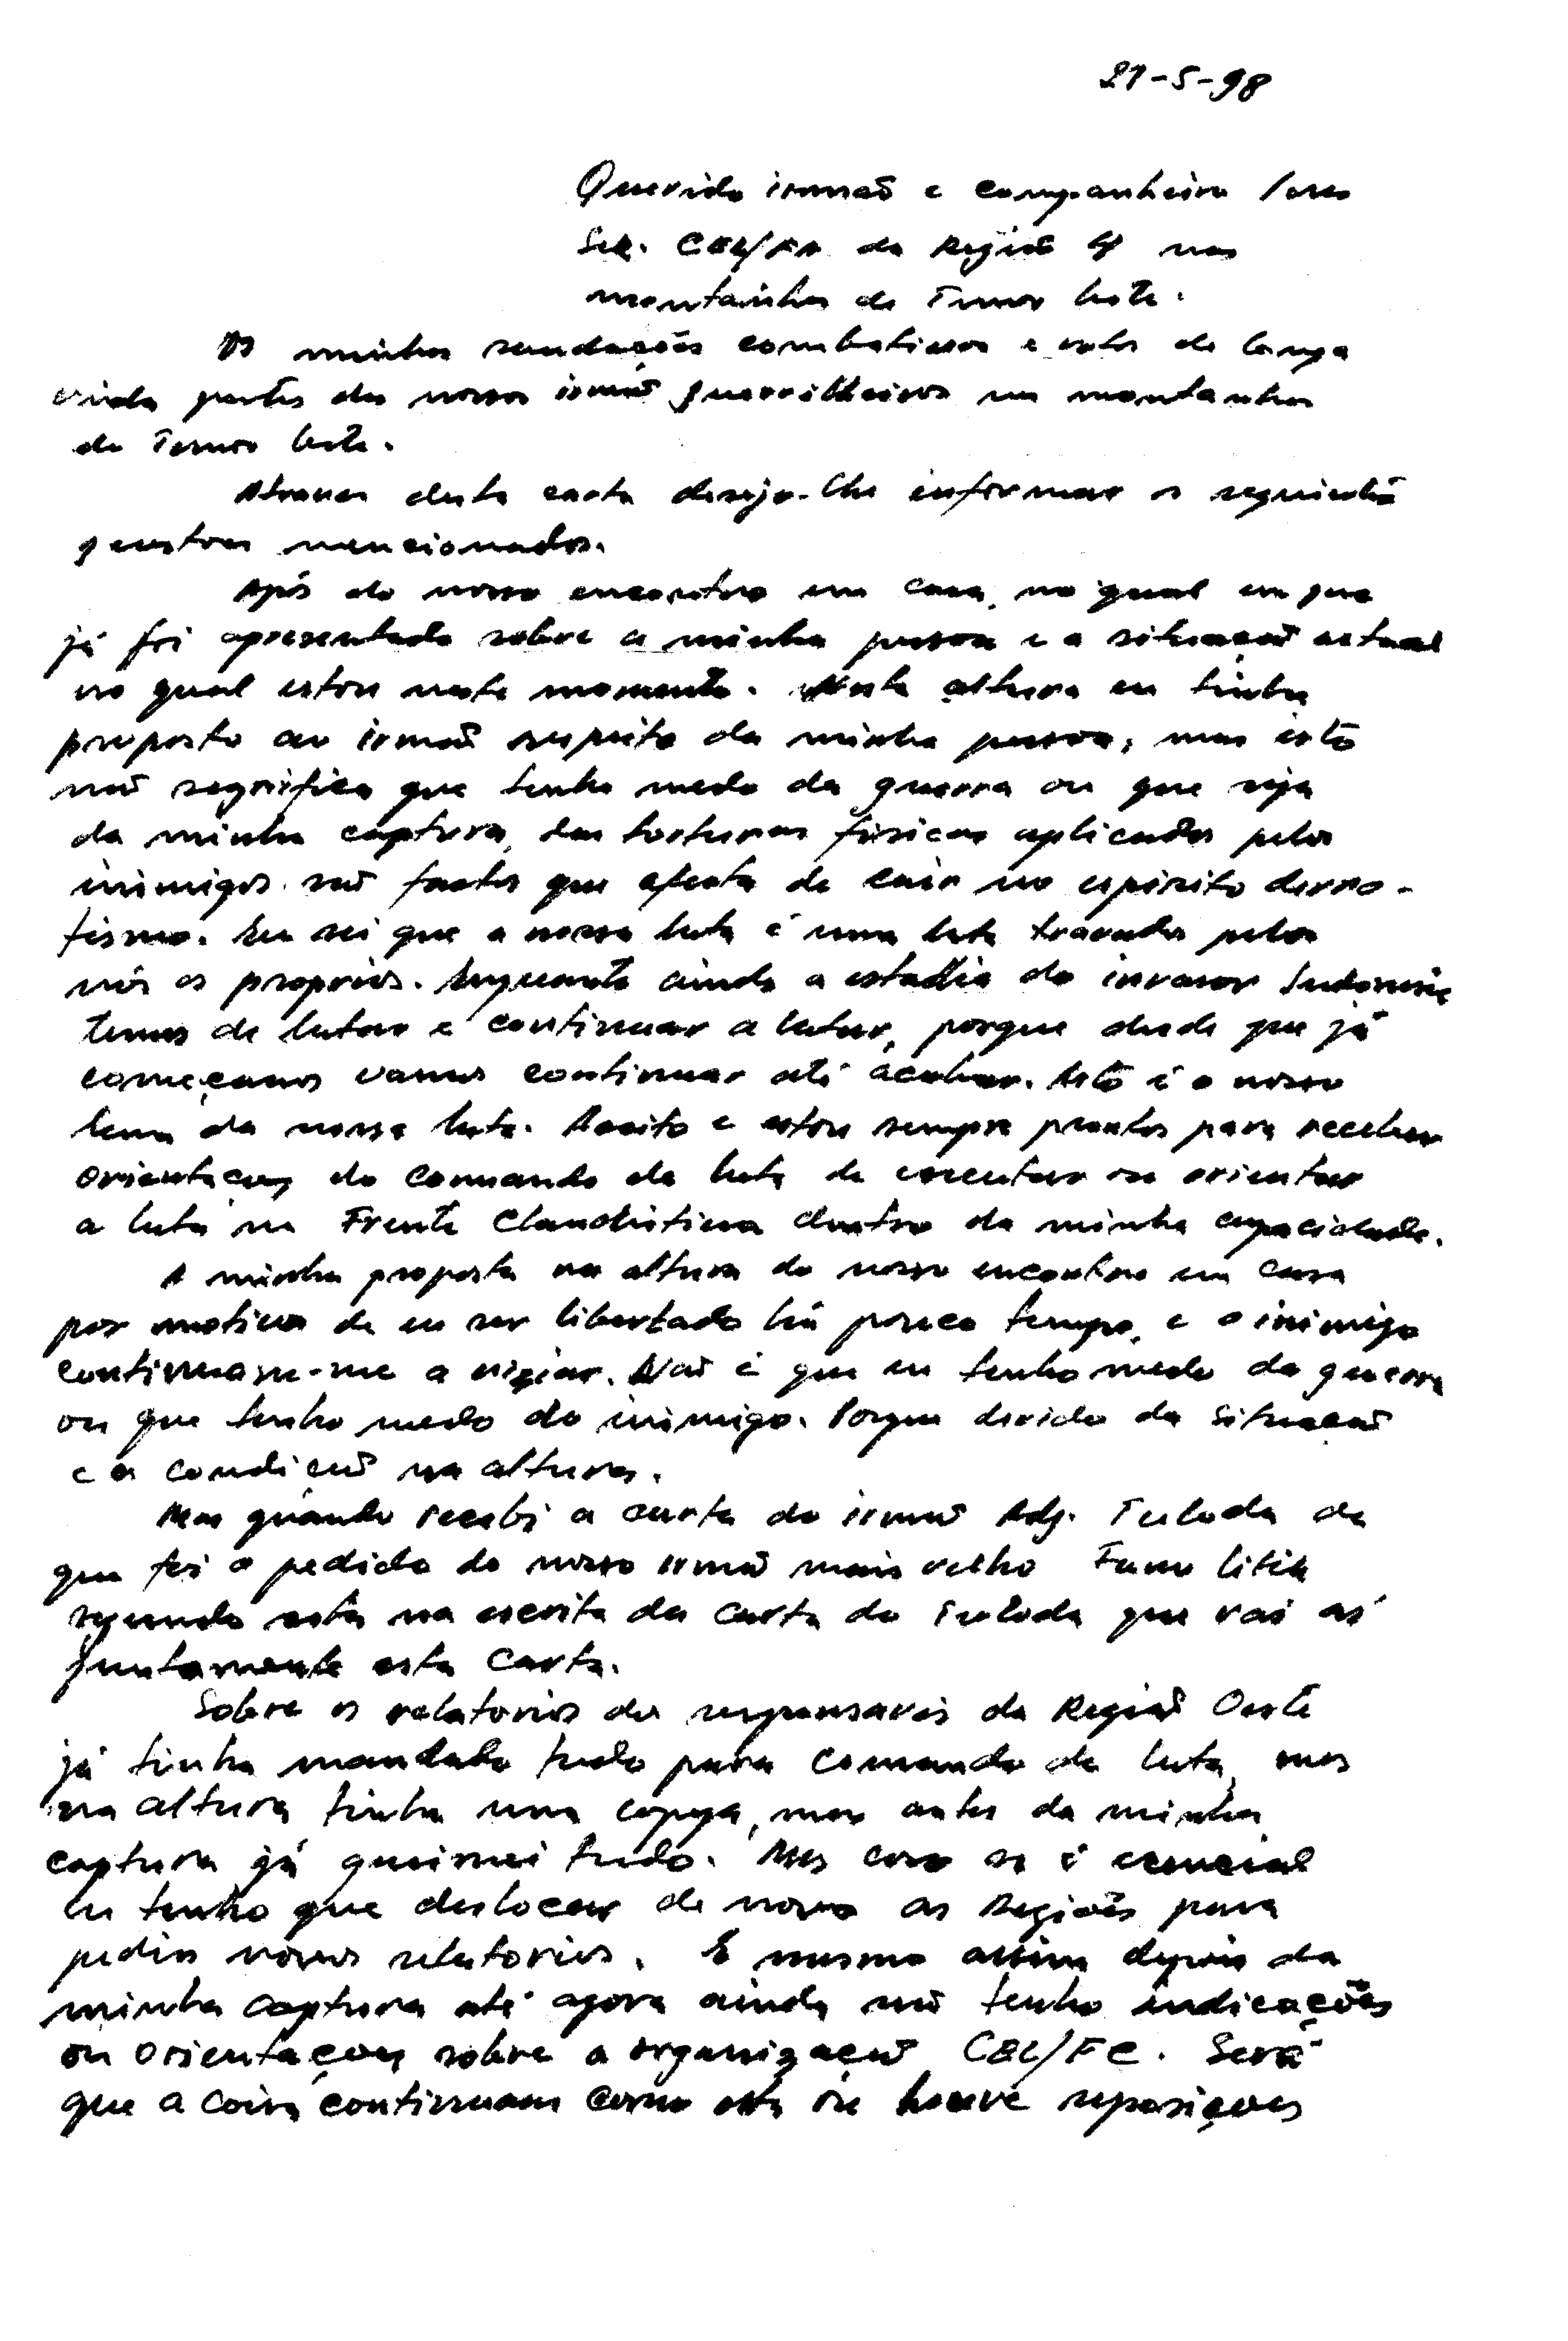 21-5-98
Querido irmaõ e companheiro
Sek. CEL/FA da Regiaõ 4 nas
montainhas de Timor Leste.
As minhas saudações combativas e votos de longa
vida juntos dos nossos irmaõ guerrilheiros nas montanhas
de Timor Leste.
Atraves desta carta desejo-lhe informar os seguintes
questoes mencionados.
Após do nosso encontro em casa, no qual em que
já foi apresentado sobre a minha pessoa e a situaçaõ actual
no qual estou neste momento. Nesta altura eu tinha
proposto ao irmaõ respeito da minha pessoa, mas isto
naõ segnifica que tenho medo da guerra ou que seja
da minha captura, das torturas fisicas aplicadas pelos
inimigos. saõ factos que afecta de cair no espirito derro-
tismo. Eu sei que a nossa luta é uma luta travada pelos
nós os proprios. Enquanto ainda a estadia do invasor Indonesia
temos de lutar e continuar a lutar, porque desde que já
começamos vamos continuar até acabar. Isto é o nosso
lema da nossa luta. Aceito e estou sempre prontos para receber
orientaçoes do Comando da luta de executar ou orientar
a luta na Frente Clandistina dentro da minha capacidade.
A minha proposta na altura do nosso encontro em casa
por motivos de eu ser libertado há pouco tempo, e o inimigo
continuam-me a vigiar. Naõ é que eu tenho medo da guerra
ou que tenho medo do inimigo. Porque devido da situaçaõ
e a condiçaõ na altura.
Mas quando recebi a carta do irmaõ Adj. Tuloda de
que foi o pedido do nosso irmaõ mais velho Funu Litik
segundo esta na escrita da carta do Tuloda que vai aí
juntamente esta carta.
Sobre os relatorios dos responsaveis da Regiaõ Oeste
já tinha mandado tudo para Comando da luta, mas
na altura tinha uma copya, mas antes da minha
captura já queimei tudo. Mas caso se é essencial
eu tenho que deslocar de novo as Regiões para
pedir novos relatorios. E mesmo assim depois da
minha captura até agora ainda naõ tenho indicações
ou orientaçoes sobre a organizaçaõ CEL/FC. Será
que a coisa continuam como esta ou houve reposiçoes